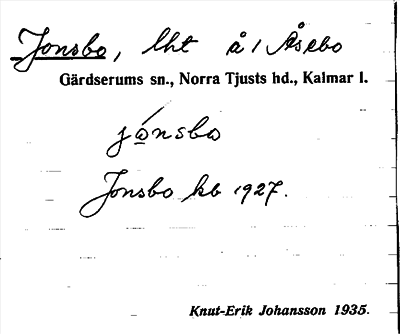 Jonsbo, lht å/Åsebo
Gärdserums sn., Norra Tjusts hd., Kalmar l.
jónsbo
Jonsbo kb 1927.
Knut-Erik Johansson 1935.